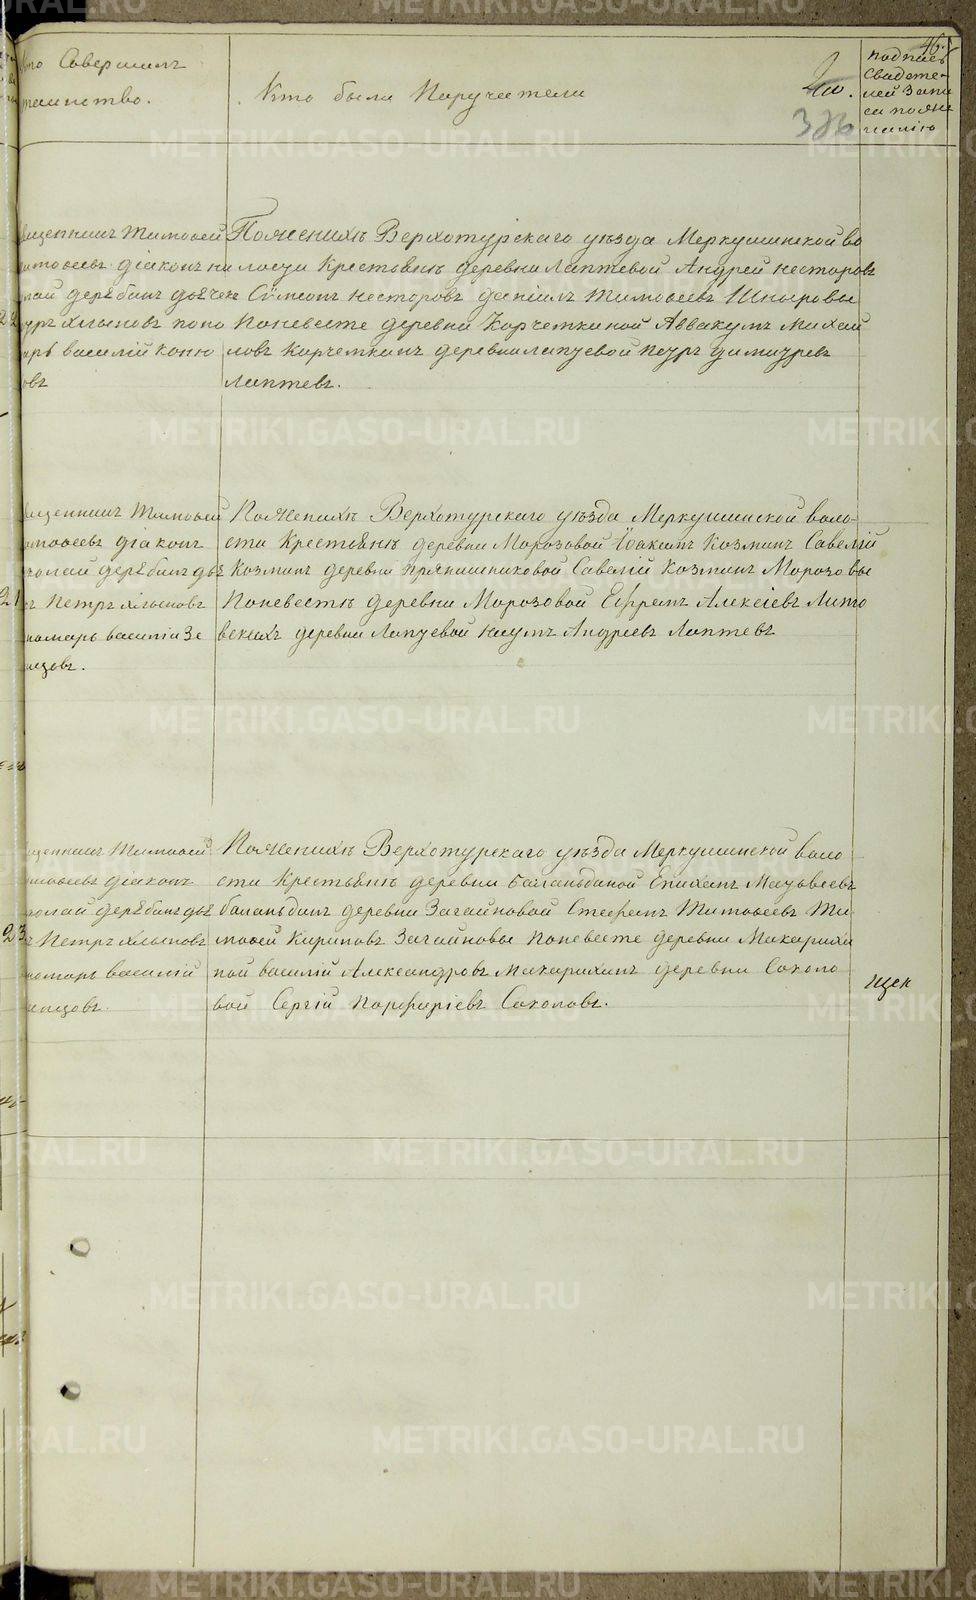 46.
Кто Совершилъ
таинство.
Кто были Поручатели
подпись
Свидете-
лей Запи
си по же
ланію
326
Священникъ Тимофей
Тимофеевъ діаконъ Ни
колай дерябинъ дьячекъ
Петръ Хлыновъ поно
марь василій Коню
овъ
Поженихѣ Верхотурскаго уѣзда Меркушинской во
лости Крестьянѣ деревни Лаптевой Андрей Несторовъ
Сѵмеонъ Несторовъ Даніилъ Тимофеевъ
Поневесте деревни Корчемкиной Аввакумъ Михай
ловъ Корчемкинъ деревни лаптевой Петръ димитревъ
Лаптевъ.
Священникъ Тимофей
Тимофеевъ діаконъ
Николай дерябинъ дья
21 Петръ Хлыновъ
пономарь василій Зе
мцовъ.
Поженихѣ Верхотурскаго уѣзда Меркушинской воло-
сти Крестьянѣ деревни Морозовой Іоакимъ Козминъ Савелій
Козминъ деревни Прянишниковой Савелій Козминъ Морозовы
Поневестѣ деревни Морозовой Ефремъ Алексіевъ Лито
вскихъ деревни Лаптевой Наумъ Андреевъ Лаптевъ
Священникъ Тимофей
Тимофеевъ діаконъ
Николай дерябинъ дья
23 Петръ Хлыновъ
пономарь василій
Земцовъ.
Поженихѣ Верхотурскаго уѣзда Меркушинской воло
сти Крестьянѣ деревни Баландиной Епихамъ Матвѣевъ
баландинъ деревни Загайновой Стефанъ Тимофеевъ Ти-
мофей Кириловъ Загайновы Поневесте деревни Макарихи
ной василій Александровъ Макарихинъ деревни Соколо
вой Сергій Порфиріевъ Соколовъ.
щен
METRIKI.GASO-URAL.RU